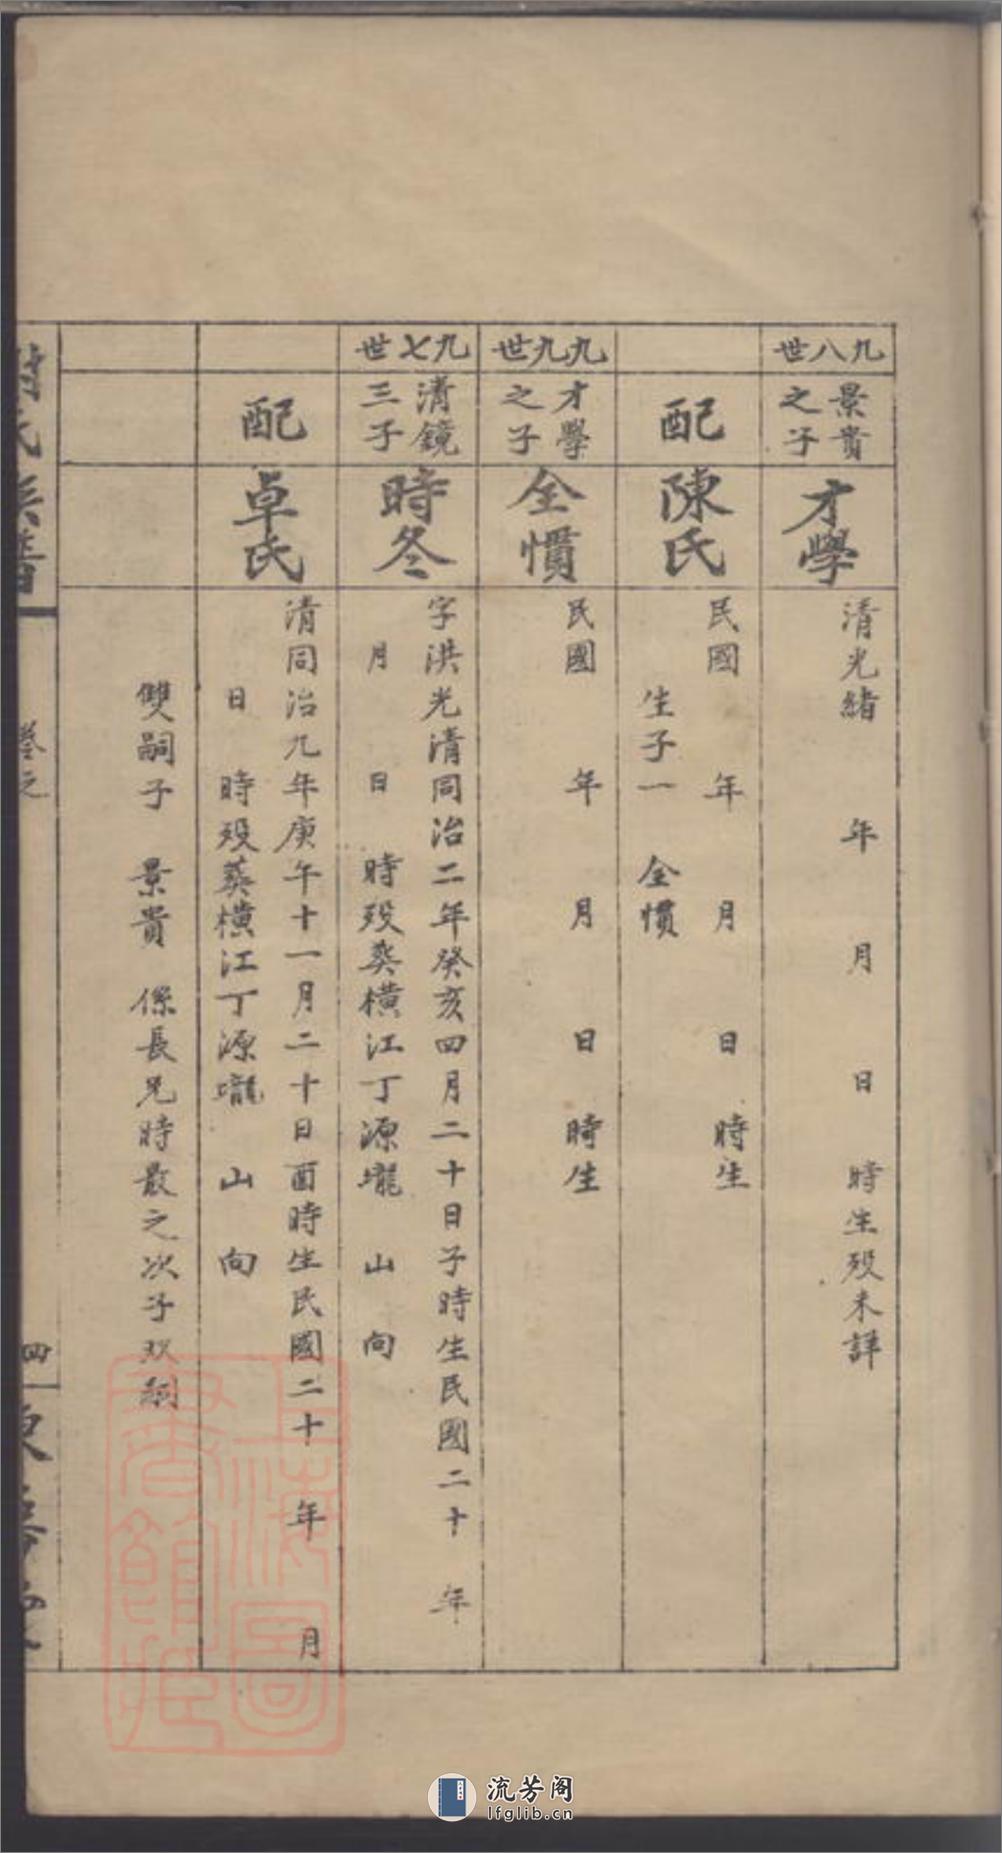 九八世
景貴
之子
才學
清光緒 年 月 日 時生歿未詳
配
陳氏
民國 年 月 日 時生
生子一 全慣
九九世
才學
之子
全慣
民國 年 月 日 時生
九七世
清鏡
三子
時冬
字洪光清同治二年癸亥四月二十日子時生民國二十 年
月 日 時歿葬橫江丁源壠 山 向
配
卓氏
清同治九年庚午十一月二十日酉時生民國二十 年 月
日 時歿葬橫江丁源壠 山 向
雙嗣子 景貴 係長兄時最之次子双嗣
卷之
四
上海圖書館藏
流芳阁
lfglib.cn